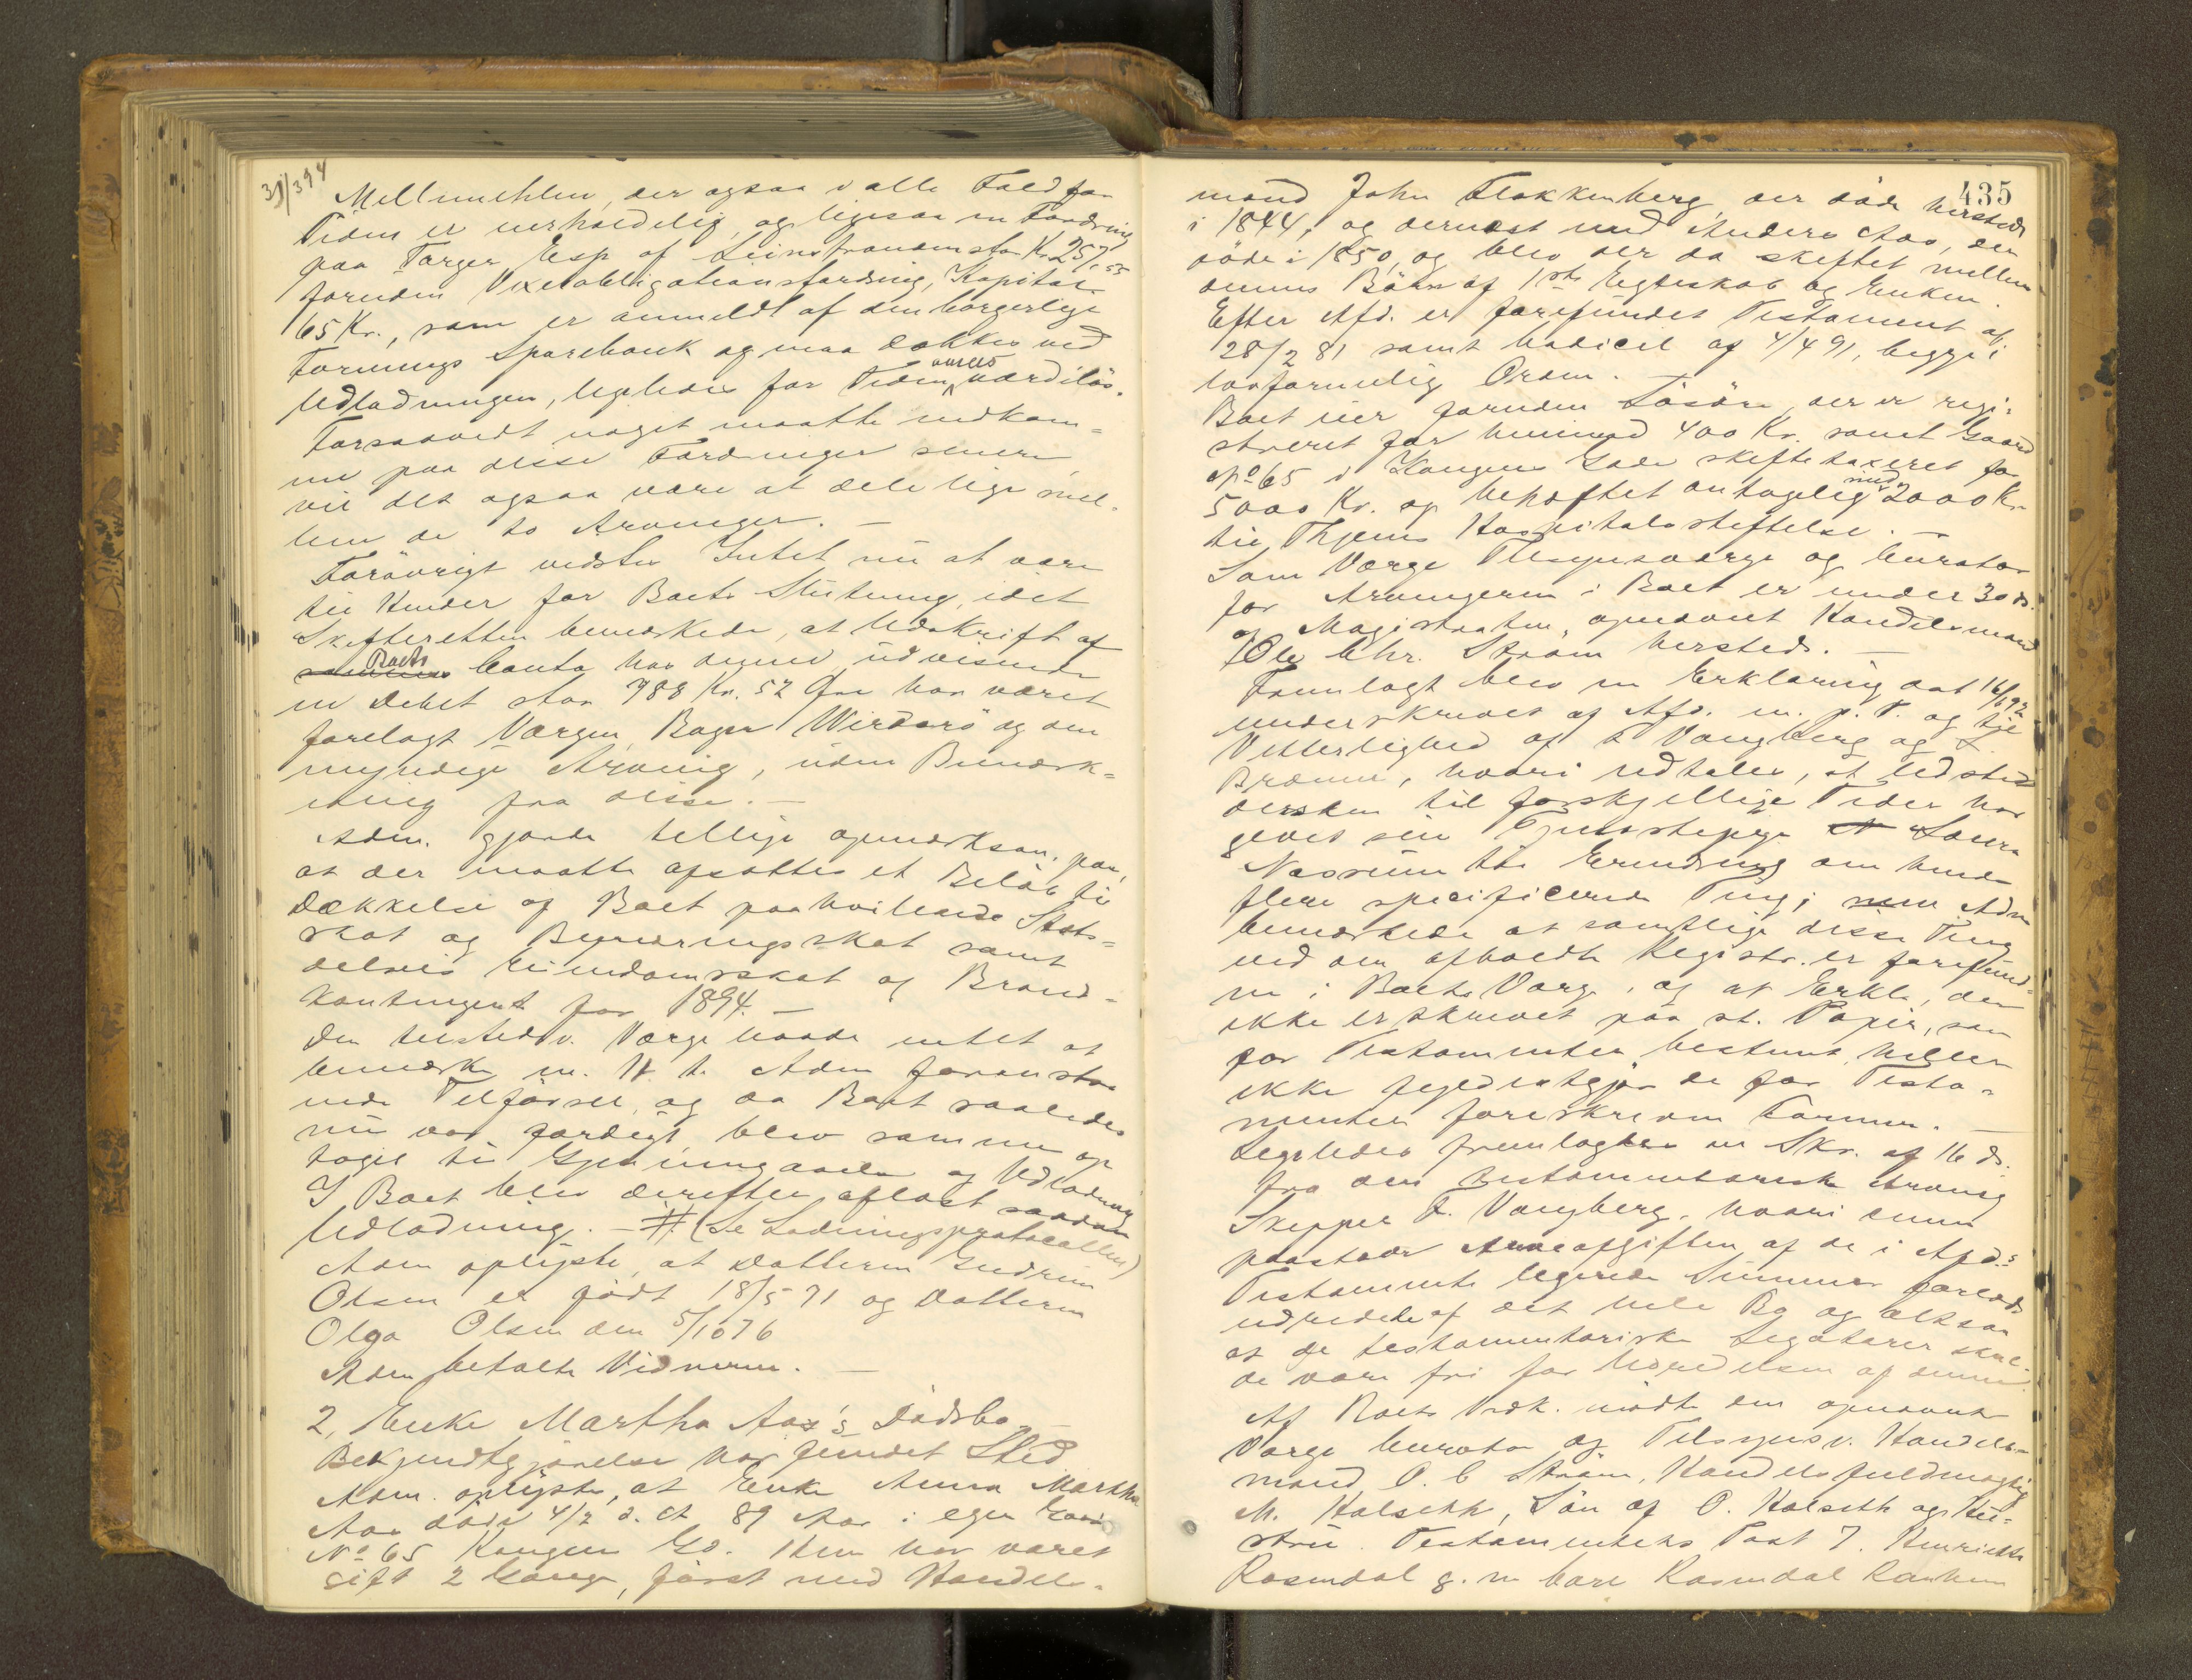 31/3 94
Mellemehlen, der ogsaa i alle Fald for
Tiden er uerholdelig, og ligesaa en Fordring
paa Torger Esp af Leinstranden stor Kr. 257,55
foruden Vexelobligationsfordring, Kapital
165 Kr., som er anmeldt af den borgerlige
Forenings Sparebank og maa dækkes ved
Udlodningen, ligeledes for Tiden værdiløs.
Forsaavidt noget maatte indkom=
me paa disse Fordringer senere,
vil det ogsaa være at dele lige mel-
lem de to Arvinger. —
Forøvrigt vidstes Intet nu at være
til Hinder for Boets Slutning, idet
Skifteretten bemærkede, at Udskrift af
Boets Conto hos denne udvisende
en Debet stor 788 Kr. 52 Øre har været
forelagt Værgen, Bager Wirdarø og den
myndige Arving, uden Bemærk=
ning fra disse. —
Adm. gjorde tillige opmærksom paa,
at der maatte afsættes et Beløb til
Dækkelse af Boet paahvilende Stats=
skat og Byskat samt
delvis Eiendomsskat og Brand=
kontingent for 1894. —
Den tilstedev. Værge havde intet at
bemærke m. H. t. Adm foranstaa
ende Tilførsel, og da Boet saaledes
nu var færdigt, blev samme op
taget til Gjennemgaaelse og Udlodning
I Boet blev derefter aflæst saadan
Udlodning. — # (Se Lodningsprotocollen)
Adm oplyste, at Datteren Gudrun
Olsen er født 18/5 71 og Datteren
Olga Olsen den 5/10 76
Adm betalte Vidnerne. —
2, Enke Martha Aas's Dødsbo —
Bekjendtgjørelse har fundet Sted
Adm. oplyste, at Enke Anna Martha
Aas døde 4/2 d. A 89 Aar i egen Gaard
No 65 Kongens Gd. Hun har været
gift 2 Gange, først med Handels-
435
mand John Flakkenberg, der døde hersteds
i 1844, og dernæst med Anders Aas, der
døde i 1850, og blev der da skiftet mellem
dennes Børn af 1ste Egteskab og Enken.
Efter Afd. er forefundet Testament af
28/2 81 samt Kodicil af 4/4 91, begge i
lovformelig Orden. —
Boet eier foruden Løsøre, der er regi-
streret for henimod 400 Kr. samt Gaard
No 65 i Kongens Gade skiftetaxeret for
5000 Kr. og behæftet antagelig med 2000 Kr
til Thjems Hospitalsstiftelse. —
Som Værge Tilsynsværge og Curator
for Arvingerne i Boet er under 30 ds.
af Magistraten opnævnt Handelsmand
Ole Chr. Strøm hersteds. —
Fremlagt blev en Erklæring dat 16/6 92
underskrevet af Afd. m. p. P. og til
Vitterlighed af F Vangberg og L.
Bræmer, hvori udtales, at Udsted
ersken til forskjellige Tider har
givet sin Laura
Næsvum til Erindring om hende
flere specificerede Ting; Adm
bemærkede at samtlige disse Ting
ved den afholdte Registr. er forefund=
ne i Boets Værge, og at Erkl., der
ikke er skrevet paa st. Papir, som
for Testamenter bestemt, heller
ikke fyldestgjør de for Testa-
menter foreskrevne Former. —
Ligeledes fremlagdes en Skr. af 16 ds.
fra den testamentariske Arving
Skipper F. Vangberg, hvori denne
paastaar Arveafgiften af de i Afd.s
Testamente legerede Summer forlods
udredet af det hele Bo og altsaa
at de testamentariske Legatarer skul-
de være fri for Udredelsen af denne.
Af Boets Vedk. mødte den opnævnte
Værge Curator og Tilsynsv. Handels=
mand O. C Strøm, Handelsfuldmægtig
M. Halseth, Søn af O. Halseth og Hu=
stru. Testamentets Post 7. Henriette
Rosendal g. m Carl Rosendal Ranhem